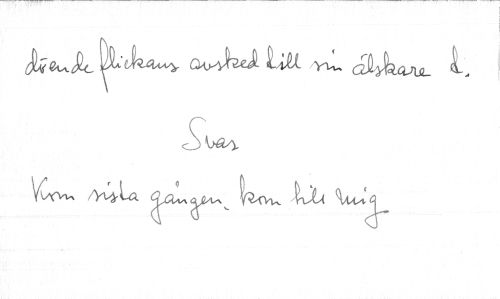 döende flickans avsked till sin älskare d.
Svar
Kom sista gången, kom till mig